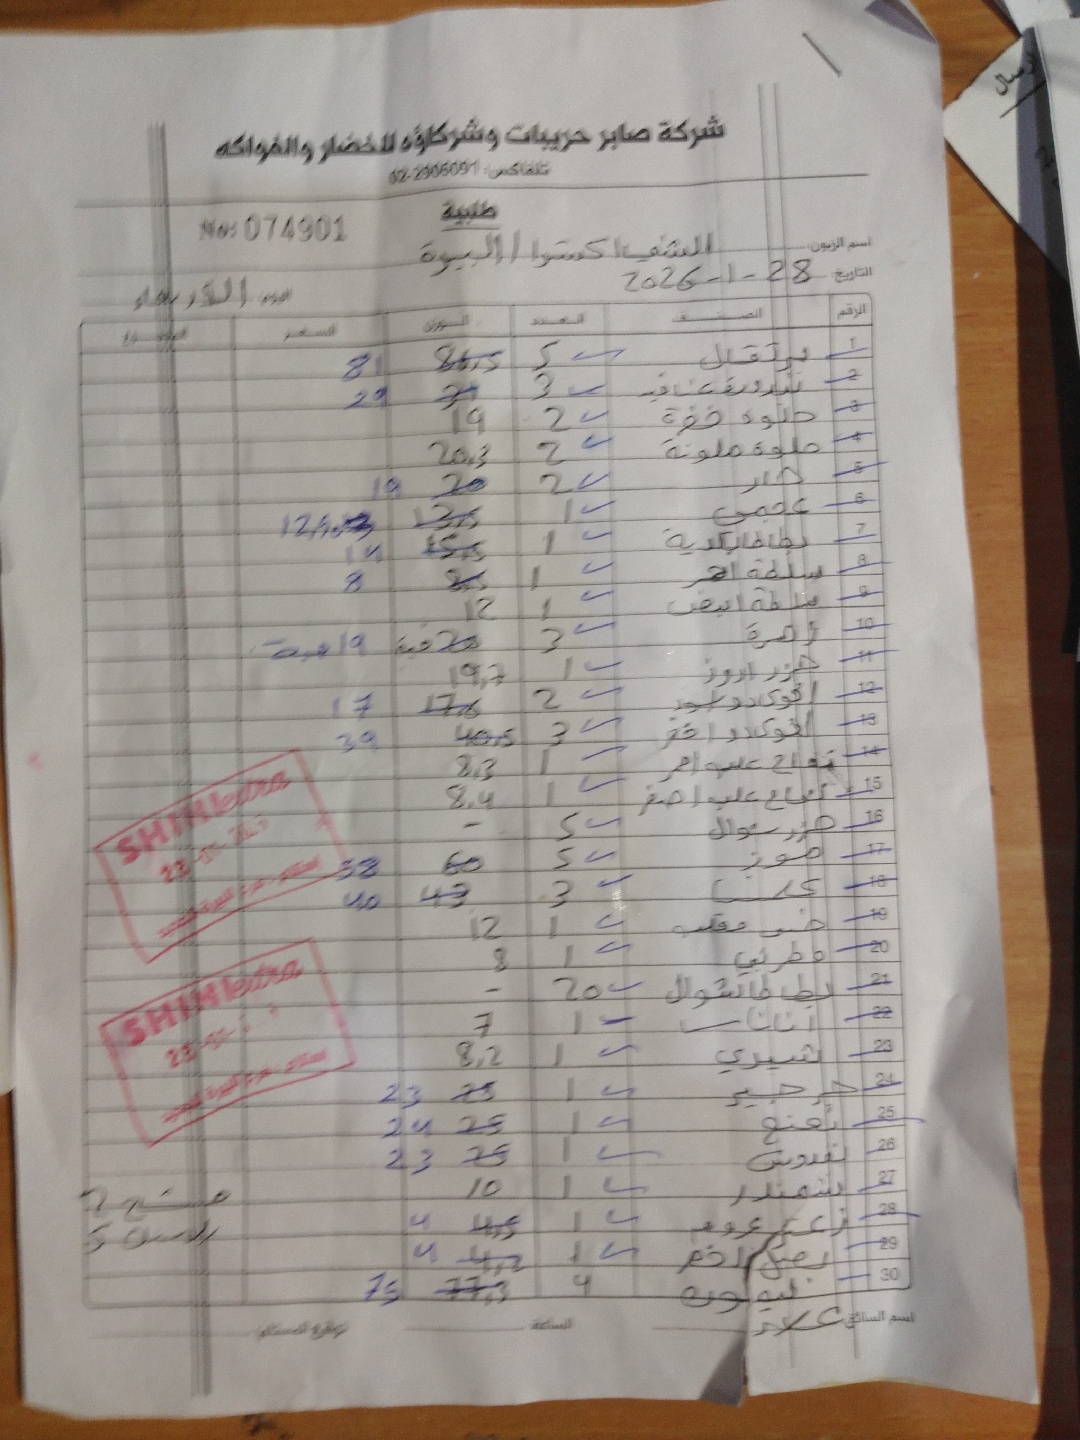 شركة صابر حريبات وشركاؤه للخضار والفواكه
تلفاكس: 02-2906091
طلبية
No: 074901
اسم الزبون: الشني اكسترا / البيرة
التاريخ: 28-1-2026
اليوم: الأربعاء
الرقم الصنف العدد الوزن السعر المجموع
1 برتقال 5 86,5 81
2 بندورة عناقيد 3 31 29
3 حلوه خضرة 2 19
4 حلوه ملونة 2 20,3
5 حار 2 20 19
6 عجمي 1 13,5
7 بطاطا بلدية 1 15,5 14
8 سلطة احمر 1 8,5 8
9 سلطة ابيض 1 12
10 3 20 19
11 جزر 1 19,7
12 افوكادو اسود 2 17,5 17
13 افوكادو اخضر 3 40,5 39
14 تفاح علب احمر 1 8,3
15 تفاح علب اصفر 1 8,4
16 جزر شوال 5 -
17 موز 5 60 58
18 كلمنتينا 3 43 40
19 خس 1 12
20 فطر بني 1 8
21 بطاطا شوال 20 -
22 اناناس 1 7
23 شيري 1 8,2
24 جرجير 1 25 23
25 نعنع 1 25 24
26 بقدونس 1 25 23
27 شمندر 1 10
28 زعتر 1 4,5 4
29 بصل اخضر 1 4,2 4
30 ليمون 4 77,3 75
مشتح 2
5
اسم السائق: علاء
الساعة
توقيع المستلم:
SHINI extra
28-01-
SHINI extra
28-01-
ارسال